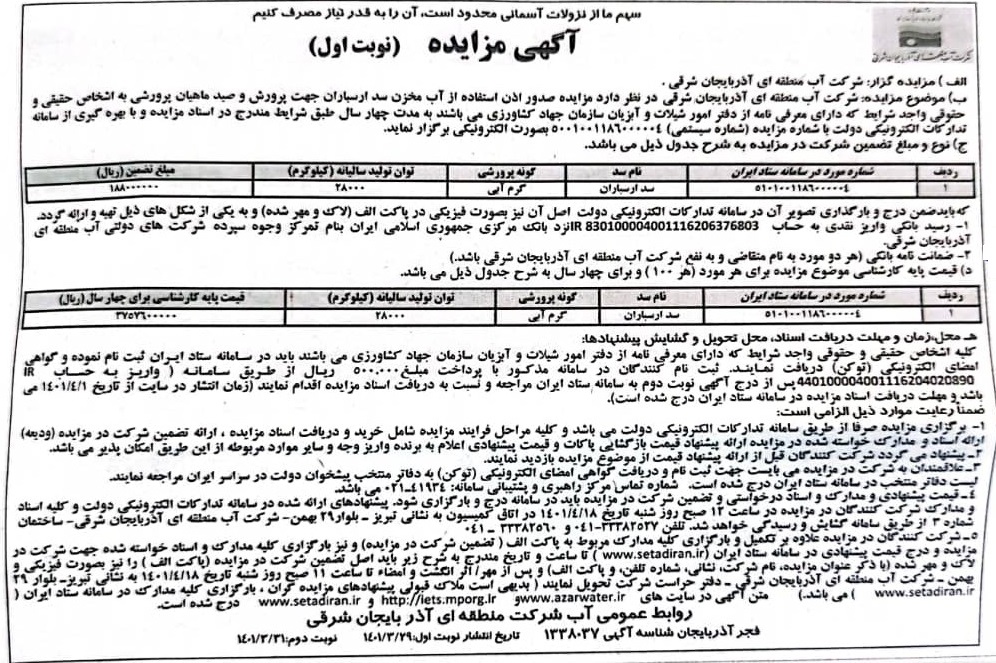 سهم ما از نزولات آسمانی محدود است، آن را به قدر نیاز مصرف کنیم
آگهی مزایده (نوبت اول)
شرکت آب منطقه ای آذربایجان شرقی
الف) مزایده گزار: شرکت آب منطقه ای آذربایجان شرقی .
ب) موضوع مزایده: شرکت آب منطقه ای آذربایجان شرقی در نظر دارد مزایده صدور اذن استفاده از آب مخزن سد ارسباران جهت پرورش و صید ماهیان پرورشی به اشخاص حقیقی و
حقوقی واجد شرایط که دارای معرفی نامه از دفتر امور شیلات و آبزیان سازمان جهاد کشاورزی می باشند به مدت چهار سال طبق شرایط مندرج در اسناد مزایده و با بهره گیری از سامانه
تدارکات الکترونیکی دولت با شماره مزایده (شماره سیستمی) ۵۰۰۱۰۰۱۱۸۶۰۰۰۰۰۴ بصورت الکترونیکی برگزار نماید.
ج) نوع و مبلغ تضمین شرکت در مزایده به شرح جدول ذیل می باشد.
ردیف شماره مورد در سامانه ستاد ایران نام سد گونه پرورشی توان تولید سالیانه (کیلوگرم) مبلغ تضمین (ریال)
۱ ۵۱۰۱۰۰۱۱۸۶۰۰۰۰۰۴ سد ارسباران گرم آبی ۲۸۰۰۰ ۱۸۸۰۰۰۰۰۰
که باید ضمن درج و بارگذاری تصویر آن در سامانه تدارکات الکترونیکی دولت اصل آن نیز بصورت فیزیکی در پاکت الف (لاک و مهر شده) و به یکی از شکل های ذیل تهیه و ارائه گردد.
۱- رسید بانکی واریز نقدی به حساب IR 830100004001116206376803 نزد بانک مرکزی جمهوری اسلامی ایران بنام تمرکز وجوه سپرده شرکت های دولتی آب منطقه ای
آذربایجان شرقی.
۲- ضمانت نامه بانکی (هر دو مورد به نام متقاضی و به نفع شرکت آب منطقه ای آذربایجان شرقی باشد.)
د) قیمت پایه کارشناسی موضوع مزایده برای هر مورد (هر ۱۰۰) و برای چهار سال به شرح جدول ذیل می باشد.
ردیف شماره مورد در سامانه ستاد ایران نام سد گونه پرورشی توان تولید سالیانه (کیلوگرم) قیمت پایه کارشناسی برای چهار سال (ریال)
۱ ۵۱۰۱۰۰۱۱۸۶۰۰۰۰۰۴ سد ارسباران گرم آبی ۲۸۰۰۰ ۳۷۵۷۶۰۰۰۰۰
هـ محل،زمان و مهلت دریافت اسناد، محل تحویل و گشایش پیشنهادها:
کلیه اشخاص حقیقی و حقوقی واجد شرایط که دارای معرفی نامه از دفتر امور شیلات و آبزیان سازمان جهاد کشاورزی می باشند باید در سامانه ستاد ایران ثبت نام نموده و گواهی
امضای الکترونیکی (توکن) دریافت نمایند. ثبت نام کنندگان در سامانه مذکور با پرداخت مبلغ ۵۰۰.۰۰۰ ریال از طریق سامانه ( واریز به حساب IR
440100004001116204020890 پس از درج آگهی نوبت دوم به سامانه ستاد ایران مراجعه و نسبت به دریافت اسناد مزایده اقدام نمایند (زمان انتشار در سایت از تاریخ ۱۴۰۱/۴/۱ می
باشد و مهلت دریافت اسناد مزایده در سامانه ستاد ایران درج شده است).
ضمناً رعایت موارد ذیل الزامی است:
۱- برگزاری مزایده صرفا از طریق سامانه تدارکات الکترونیکی دولت می باشد و کلیه مراحل فرایند مزایده شامل خرید و دریافت اسناد مزایده ، ارائه تضمین شرکت در مزایده (ودیعه)
ارائه اسناد و مدارک خواسته شده در مزایده ارائه پیشنهاد قیمت بازگشایی پاکات و قیمت پیشنهادی اعلام به برنده واریز وجه و سایر موارد مربوطه از این طریق امکان پذیر می باشد.
۲- پیشنهاد می گردد شرکت کنندگان قبل از ارائه پیشنهاد قیمت از موضوع مزایده بازدید نمایند.
۳- علاقمندان به شرکت در مزایده می بایست جهت ثبت نام و دریافت گواهی امضای الکترونیکی (توکن) به دفاتر منتخب پیشخوان دولت در سراسر ایران مراجعه نمایند.
لیست دفاتر منتخب در سامانه ستاد ایران درج شده است. شماره تماس مرکز راهبری و پشتیبانی سامانه: ۴۱۹۳۴-۰۲۱ می باشد.
۴- قیمت پیشنهادی و مدارک و اسناد درخواستی و تضمین شرکت در مزایده باید در سامانه درج و بارگزاری شود. پیشنهادهای ارائه شده در سامانه تدارکات الکترونیکی دولت و کلیه اسناد
و مدارک شرکت کنندگان در مزایده در ساعت ۱۲ صبح روز شنبه تاریخ ۱۴۰۱/۴/۱۸ در اتاق کمیسیون به نشانی تبریز – بلوار ۲۹ بهمن- شرکت آب منطقه ای آذربایجان شرقی- ساختمان
شماره ۳ از طریق سامانه گشایش و رسیدگی خواهد شد. تلفن ۳۳۳۸۲۵۲۷-۰۴۱ و ۳۳۳۸۲۵۶۰ – ۰۴۱
۵- شرکت کنندگان در مزایده علاوه بر تکمیل و بارگزاری کلیه مدارک مربوط به پاکت الف ( تضمین شرکت در مزایده) و نیز بارگزاری کلیه مدارک و اسناد خواسته شده جهت شرکت در
مزایده و درج قیمت پیشنهادی در سامانه ستاد ایران (www.setadiran.ir ) تا ساعت و تاریخ مندرج به شرح زیر باید اصل تضمین شرکت در مزایده (پاکت الف ) را نیز بصورت فیزیکی و
لاک و مهر شده (با ذکر عنوان مزایده، نام شرکت، نشانی، شماره تلفن، و پاکت الف) و پس از مهر/ اثر انگشت و امضاء تا ساعت ۱۱ صبح روز شنبه تاریخ ۱۴۰۱/۴/۱۸ به نشانی تبریز- بلوار ۲۹
بهمن – شرکت آب منطقه ای آذربایجان شرقی – دفتر حراست شرکت تحویل نمایند ( بدیهی است ملاک قبولی پیشنهادهای مزایده گران ، بارگزاری کلیه مدارک در سامانه ستاد ایران (
www.setadiran.ir ) می باشد.) متن آگهی در سایت های www.azarwater.ir و http://iets.mporg.ir و www.setadiran.ir درج شده است.
روابط عمومی آب شرکت منطقه ای آذربایجان شرقی
فجر آذربایجان شناسه آگهی ۱۳۳۸۰۳۷ تاریخ انتشار نوبت اول: ۱۴۰۱/۳/۲۹ نوبت دوم: ۱۴۰۱/۳/۳۱